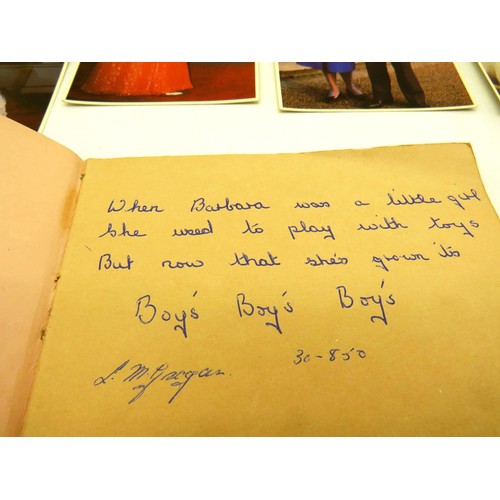 When Barbara was a little girl
She used to play with toys
But now that she's grown it's
Boy's Boy's Boy's
30-8-50
L. McGregan.